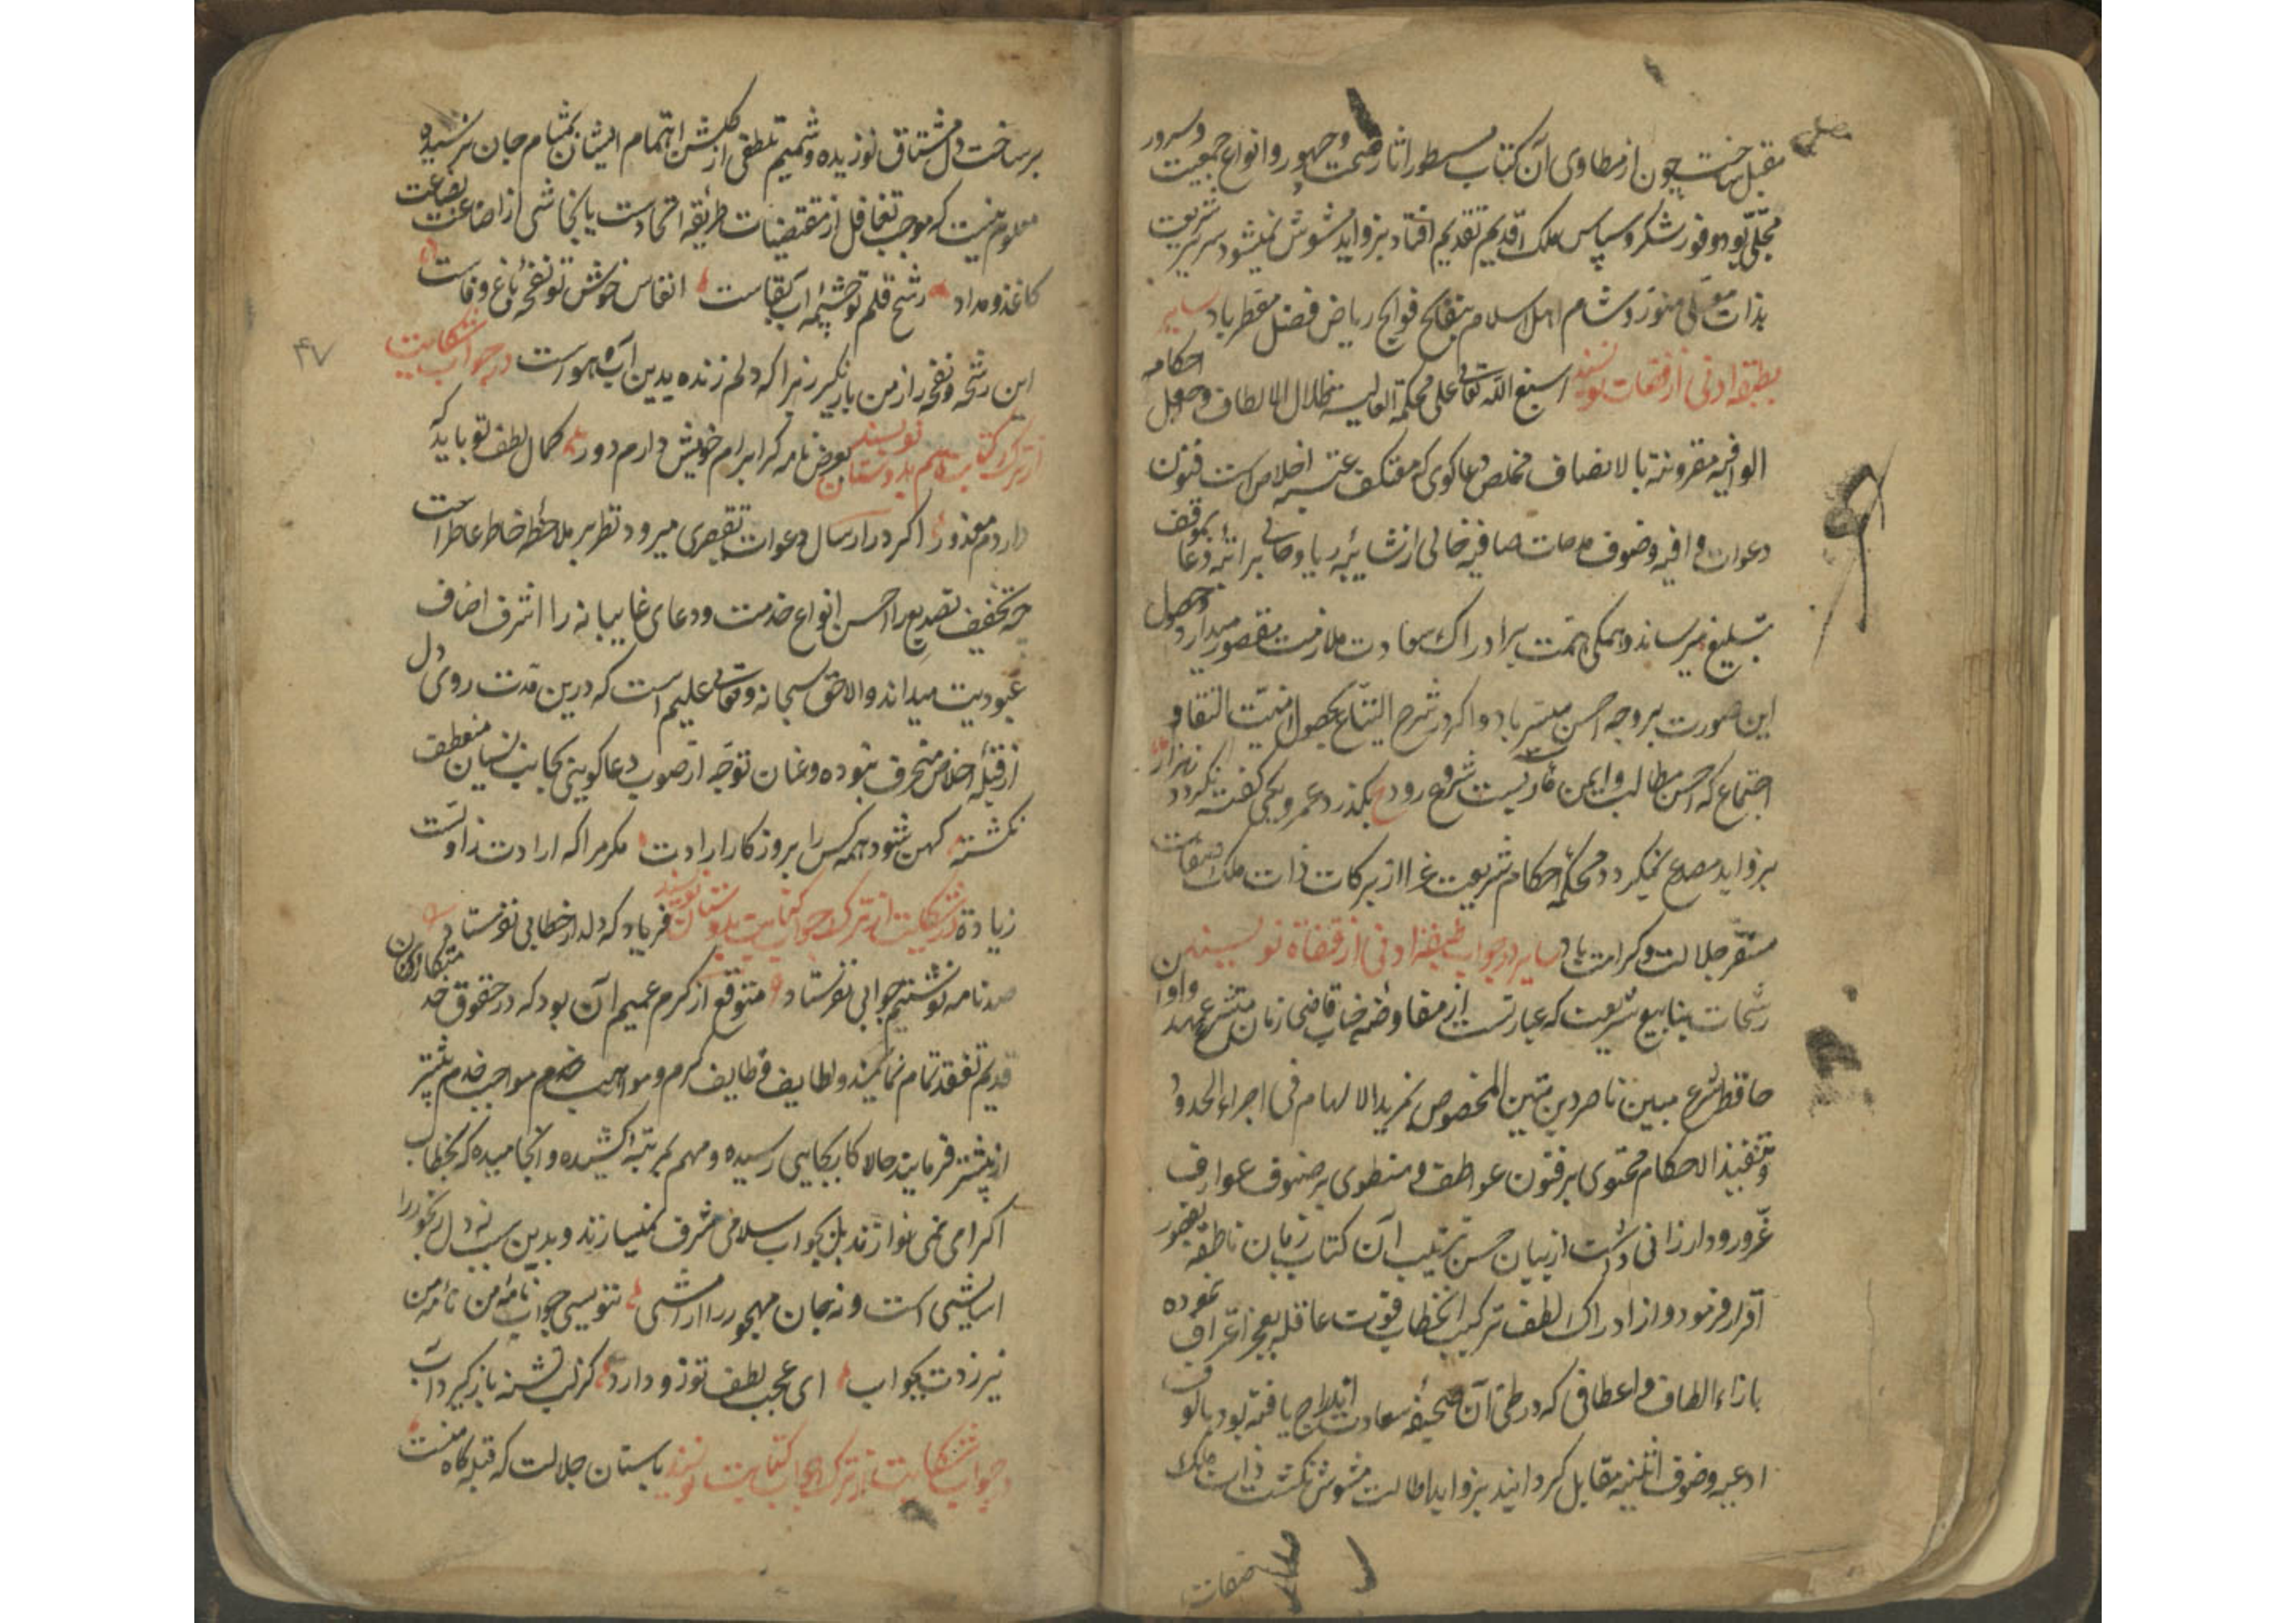 مقبل ساخت چون از مطاوی آن کتاب مسطور اثار صحت و جمهور و انواع جمعیت و سرور
مجلی بود بوفور شکر و سپاس ملک قدیم تقدیم افتاد بزواید مشوش نمیشود سریر شریعت
بذات مولی منور و مشام اهل اسلام بنفایح فوایح ریاض فضل معطر باد سایر
بطبقه ادنی از قضات نویسند اسبغ الله تعالی علی محکمة العالیه ظلال الالطاف و جعل احکامه
الوافیه مقرونة بالانصاف مخلص دعاگوی که معتکف عتبه اخلاص است فنون
دعوات وافیه و صنوف مدحات صافیه خالی از شائبه ریا و خالی بموقف دعا
تبلیغ میرساند و همگی همت برادراک سعادت ملازمت مقصور میدارد و حصول
این صورت بر وجه احسن میسر باد و اگر در شرح التیاع بحصول امنیت التقا و
اجتماع که احسن مطالب و ایمن مآربست شروع رود ع بگذرد عمر و یکی گفته نگردد ز هزار
بزواید مصدع نمیگردد محکمه احکام شریعت غرا از برکات ذات ملک صفات
مستقر جلالت و کرامت باد سایر در جواب طبقه ادنی از قضاة نویسند
رشحات ینابیع شریعت که عبارتست از مفاوضه جناب قاضی زمان متشرع عهد و اوان
حافظ شرع مبین ناصر دین متین المخصوص بمزید الالهام فی اجراء الحدود
و تنفیذ الاحکام محتوی بر فنون عواطف و منطوی بر صنوف عوارف
عز ورود ارزانی داشت از بیان حسن ترتیب آن کتاب زبان ناطقه بقصور
اقرار فرمود و از ادراک لطف ترکیب آن خطاب قوت عاقله بعجز اعتراف نموده
بازاء الطاف و اعطافی که در طی آن صحیفه سعادت اندراج یافته بود بالوف
ادعیه و صنوف اثنیه مقابل گردانید بزواید اطالت مشوش نگشت ذات ملک
صفات
بر ساحت دل مشتاق نوزیده و شمیم تلطفی از گلشن اهتمام ایشان بمشام جان نرسیده
معلوم نیست که موجب تغافل از مقتضیات طریقه اتحادست یا تحاشی از اضاعت بضاعت
کاغذ و مداد رشح قلم تو چشمه آب بقاست انفاس خوش تو نفحه باغ وفاست
این رشحه و نفحه را ز من باز مگیر زیرا که دلم زنده بدین آب و هواست در جواب شکایت
از ترک کتابت هم بدوستان نویسند بعوض نامه گر ابرام خویش دارم دور کمال لطف تو باید که
داردم معذور اگر در ارسال دعوات تقصیری میرود نظر بر ملاحظه خاطر عاطر است
چه تخفیف تصدیع را احسن انواع خدمت و دعای غایبانه را اشرف اصناف
عبودیت میداند و الا حق سبحانه و تعالی علیم است که درین مدت روی دل
از قبله اخلاص منحرف نبوده و عنان توجه از صوب دعاگویی بجانب نسیان منعطف
نگشته کهن شود همه کس را بروزگار ارادت مگر مرا که ارادت ز اولست
زیادة در شکایت از ترک جواب کتابت بدوستان نویسند فریاد که دلدار خطابی نفرستاد
صد نامه نوشتیم جوابی نفرستاد متوقع از کرم عمیم آن بود که در حقوق خدمتکاران
قدیم تفقد تمام نمایند و لطایف وظایف کرم و مواهب خدم مواجب خدم بیشتر
از پیشتر فرمایند حالا کار بجایی رسیده و مهم بمرتبه کشیده و انجامیده که بخطاب
اکرامی نمی نوازند بل بجواب سلامی مشرف نمیسازند و بدین سبب نه دل رنجور را
آسایشی است و نه جان مهجور را آرامشی ننویسی جواب نامه من نامه من
نیرزدت بجواب ای عجب لطف تو روا دارد کز لب تشنه باز گیرد آب
در جواب شکایت از ترک جواب کتابت نویسند باستان جلالت که قبله گاه منست
۴۷